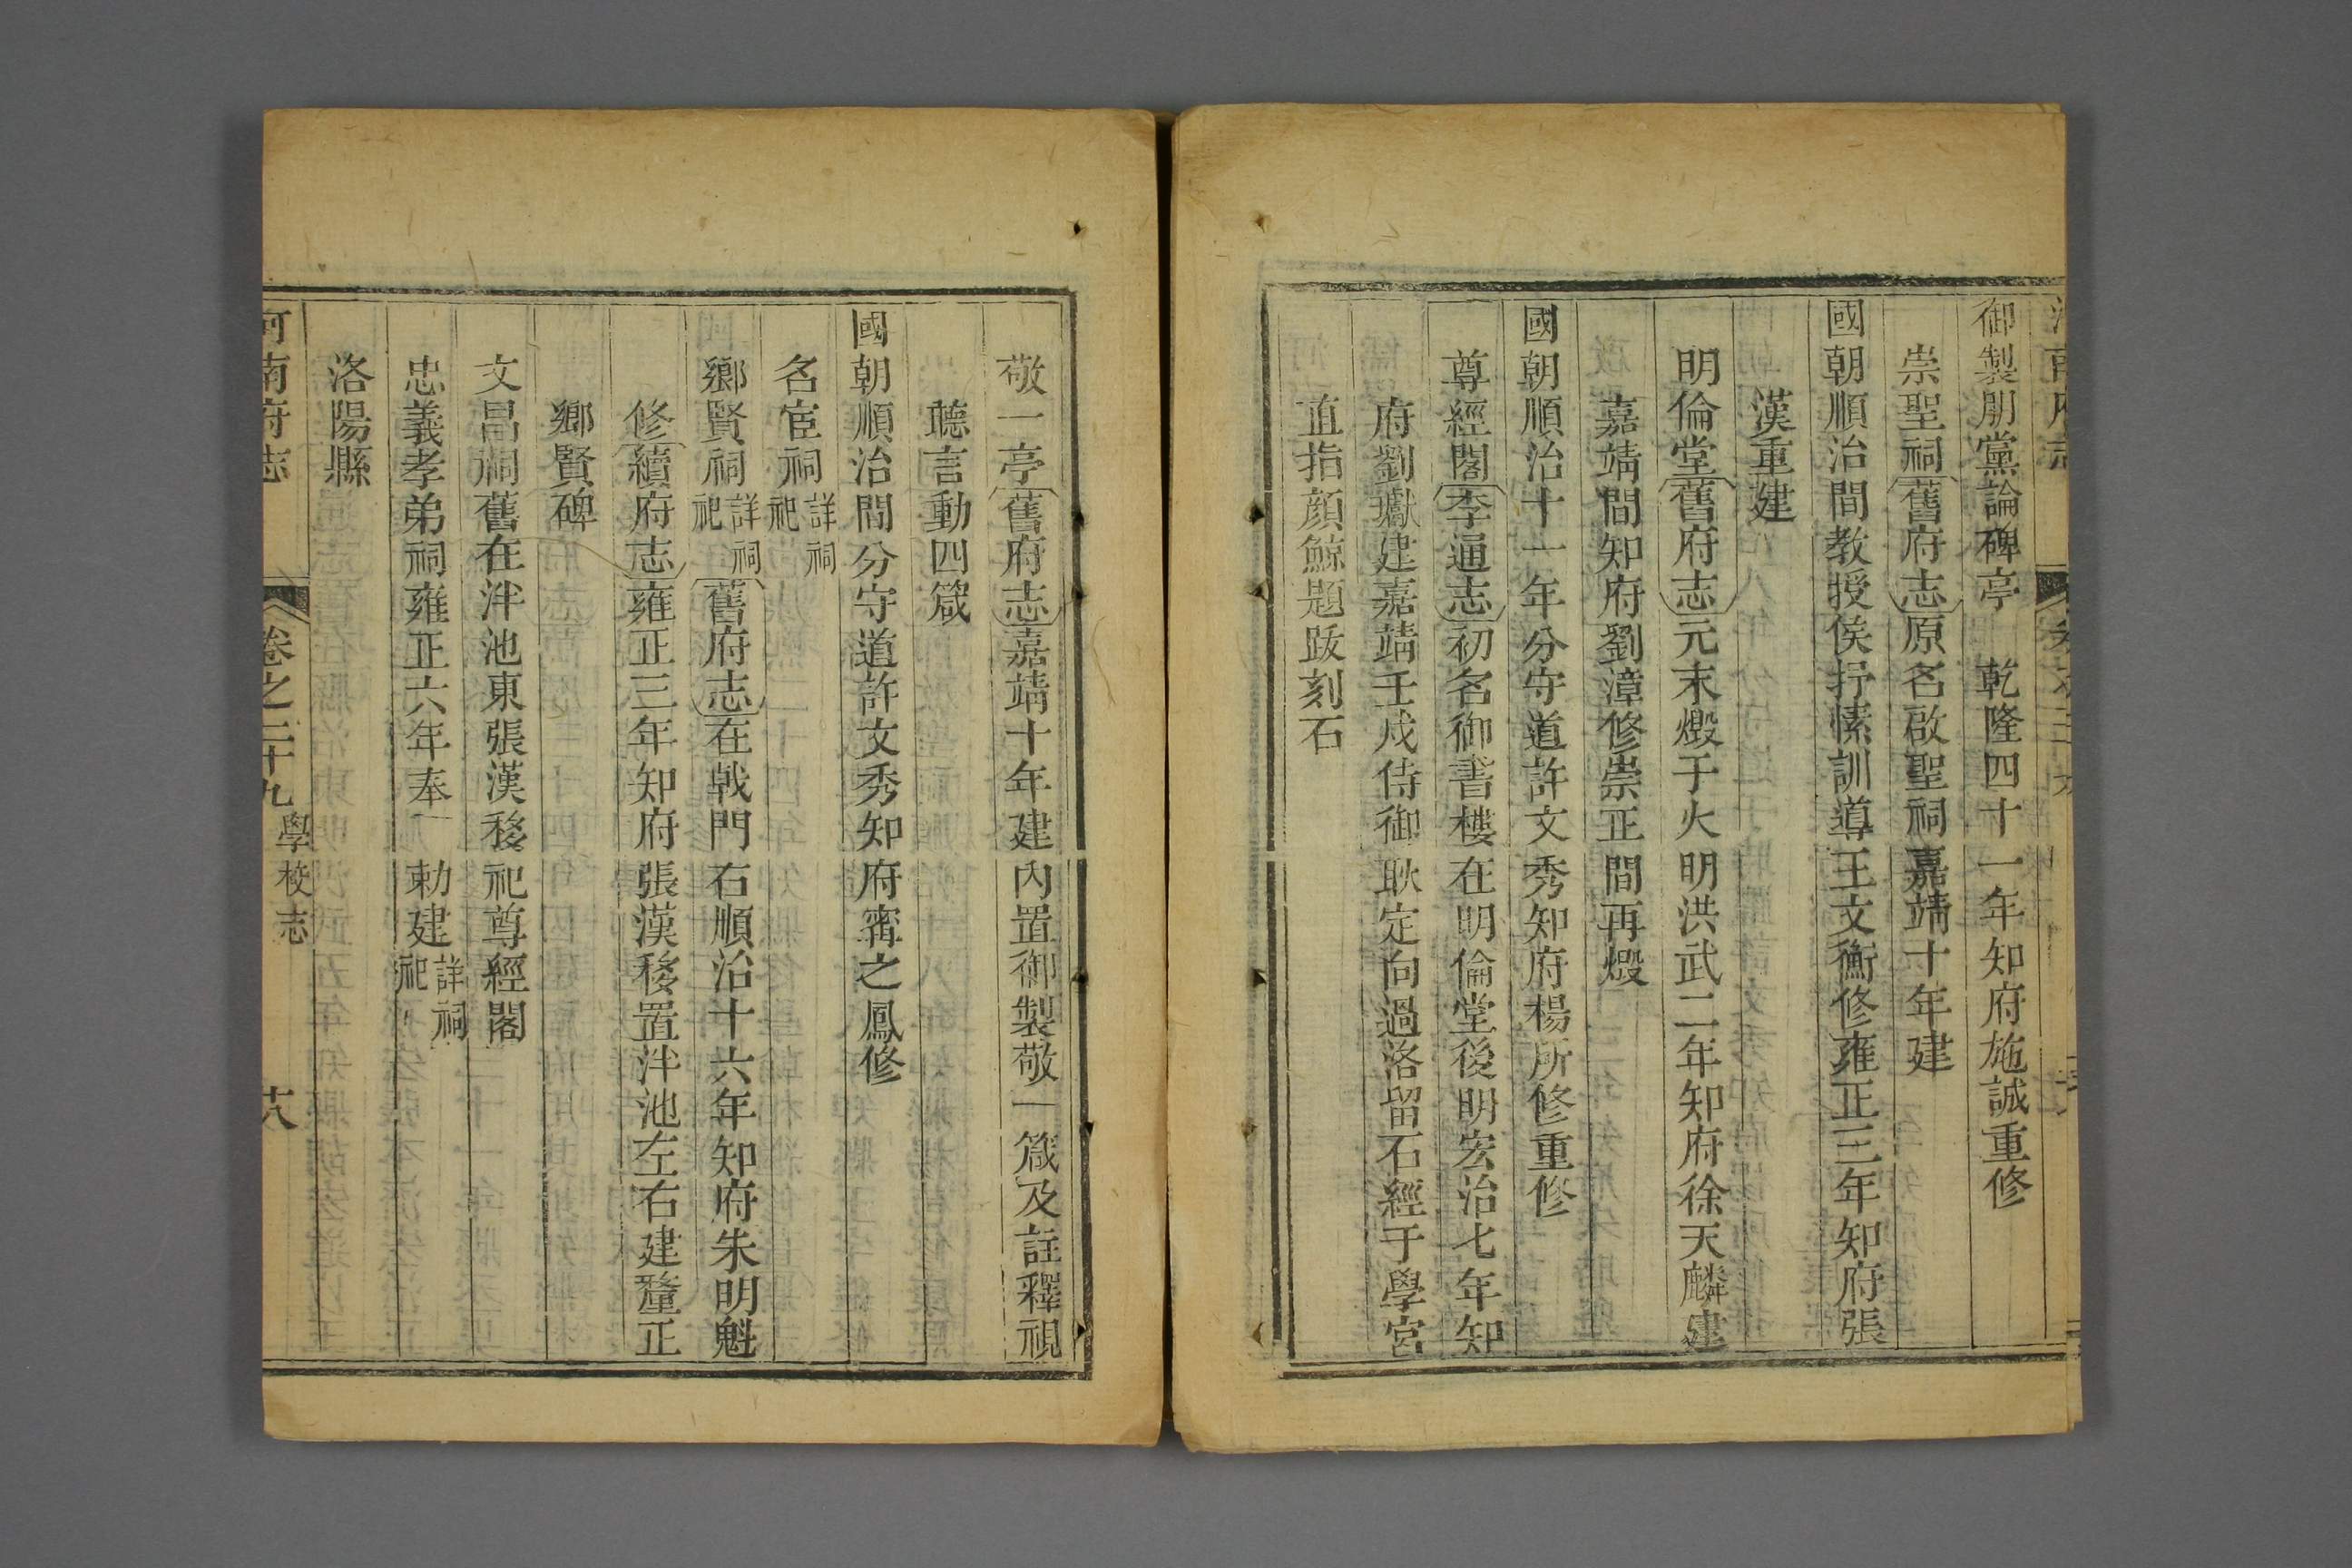 御製朋黨論碑亭　乾隆四十一年知府施誠重修
崇聖祠舊府志原名啟聖祠嘉靖十年建
國朝順治間教授侯抒愫訓導王文衡修雍正三年知府張
漢重建
明倫堂舊府志元末燬于火明洪武二年知府徐天麟建
嘉靖間知府劉漳修崇正間再燬
國朝順治十一年分守道許文秀知府楊所修重修
尊經閣李通志初名御書樓在明倫堂後明宏治七年知
府劉瓛建嘉靖壬戌侍御耿定向過洛留石經于學宮
直指顏鯨題跋刻石
敬一亭舊府志嘉靖十年建內置御製敬一箴及註釋視
聽言動四箴
國朝順治間分守道許文秀知府甯之鳳修
名宦祠詳祠祀
鄉賢祠詳祠祀舊府志在戟門右順治十六年知府朱明魁
修續府志雍正三年知府張漢移置泮池左右建釐正
鄉賢碑
文昌祠舊在泮池東張漢移祀尊經閣
忠義孝弟祠雍正六年奉　勅建詳祠祀
洛陽縣
河南府志　卷之二十九　學校志　十八